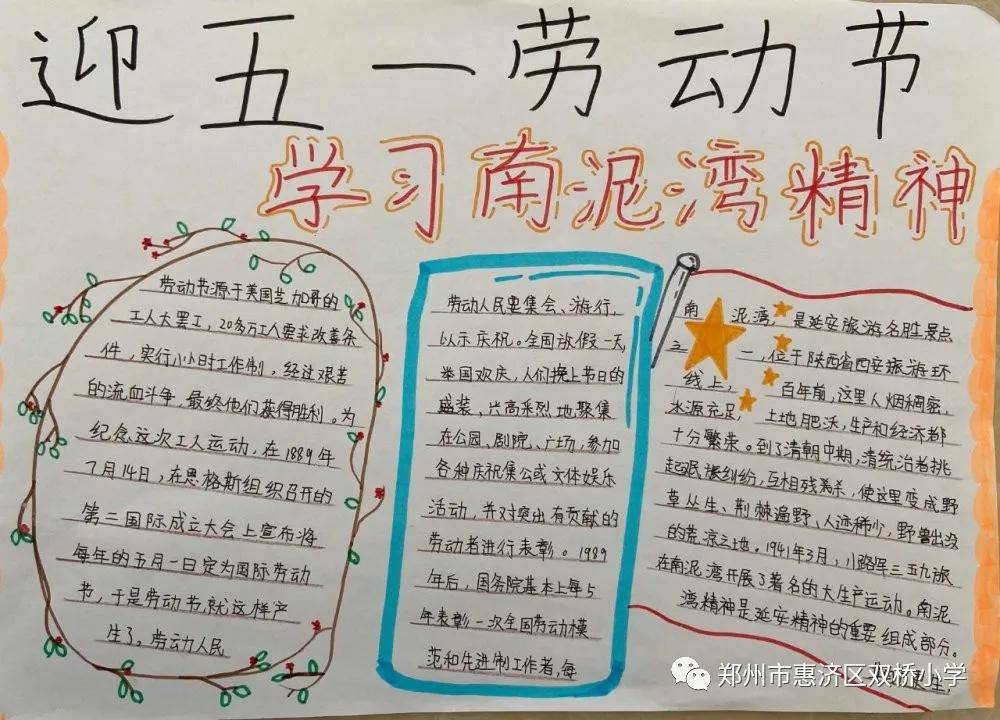 迎五一劳动节
学习南泥湾精神
劳动节源于美国芝加哥的
工人大罢工，20多万工人要求改善条
件，实行八小时工作制，经过艰苦
的流血斗争，最终他们获得胜利。为
纪念这次工人运动，在1889年
7月14日，在恩格斯组织召开的
第二国际成立大会上宣布将
每年的五月一日定为国际劳动
节，于是劳动节就这样产
生了。劳动人民
劳动人民要集会、游行，
以示庆祝。全国放假一天，
举国欢庆，人们换上节日的
盛装，兴高采烈地聚集
在公园、剧院、广场，参加
各种庆祝集会或文体娱乐
活动，并对突出有贡献的
劳动者进行表彰。1989
年后，国务院基本上每5
年表彰一次全国劳动模
范和先进制工作者，每
南泥湾，是延安旅游名胜景点
之一，位于陕西省西安旅游环
线上，百年前，这里人烟稠密，
水源充足，土地肥沃，生产和经济都
十分繁荣。到了清朝中期，清统治者挑
起民族纠纷，互相残杀，使这里变成野
草丛生、荆棘遍野、人迹稀少，野兽出没
的荒凉之地。1941年3月，八路军三五九旅
在南泥湾开展了著名的大生产运动。南泥
湾精神是延安精神的重要组成部分。
郑州市惠济区双桥小学